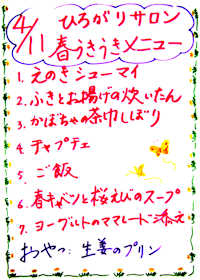 4/11 ひろがりサロン
春うきうきメニュー
1. えのきシューマイ
2. ふきとお揚げの炊いたん
3. かぼちゃの茶巾しぼり
4. チャプチェ
5. ご飯
6. 春キャベツと桜えびのスープ
7. ヨーグルトのママレード添え
おやつ: 生姜のプリン